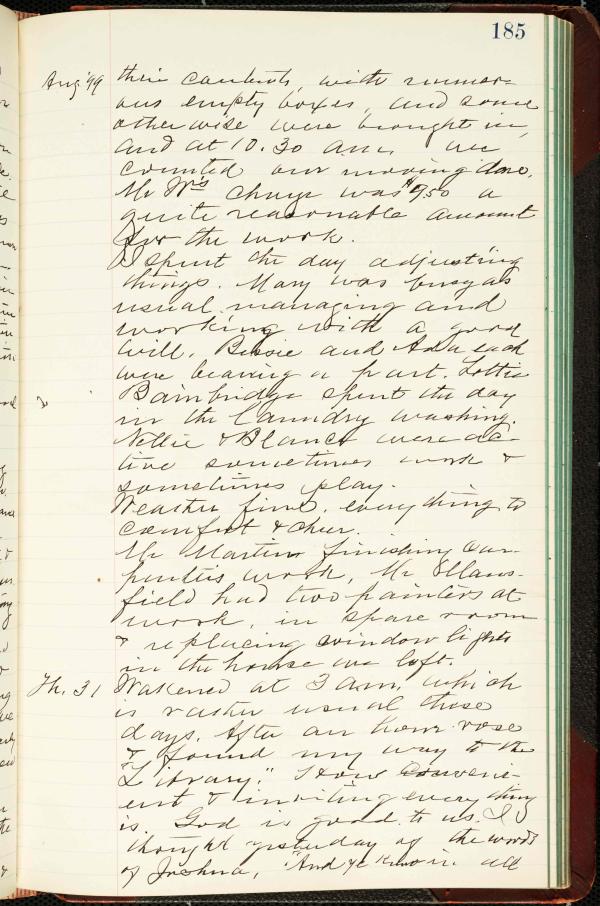 185
Aug '99 their contents, with numer-
ous empty boxes, and some
other wise were brought in,
and at 10.30 a.m. we
counted our moving done.
Mr Wms charge was $9.50 a
quite reasonable amount
for the work.
I spent the day adjusting
things. Mary was busy as
usual managing and
working with a good
will. Bessie and Ada each
were bearing a part. Lottie
Bainbridge spent the day
in the laundry washing.
Nellie & Blance were ac-
tive sometimes work &
sometimes play.
Weather fine. everything to
comfort & cheer.
Mr Martin finishing car-
penters work, Mr Maws-
field had two painters at
work, in spare room
& replacing window lights
in the house we left.
Th. 31 Wakened at 3 a.m. which
is rather usual these
days. After an hour rose
& found my way to the
"Library." How conveni-
ent & inviting every thing
is. God is good to us. I
thought yesterday of the words
of Joshua, "And ye know in all